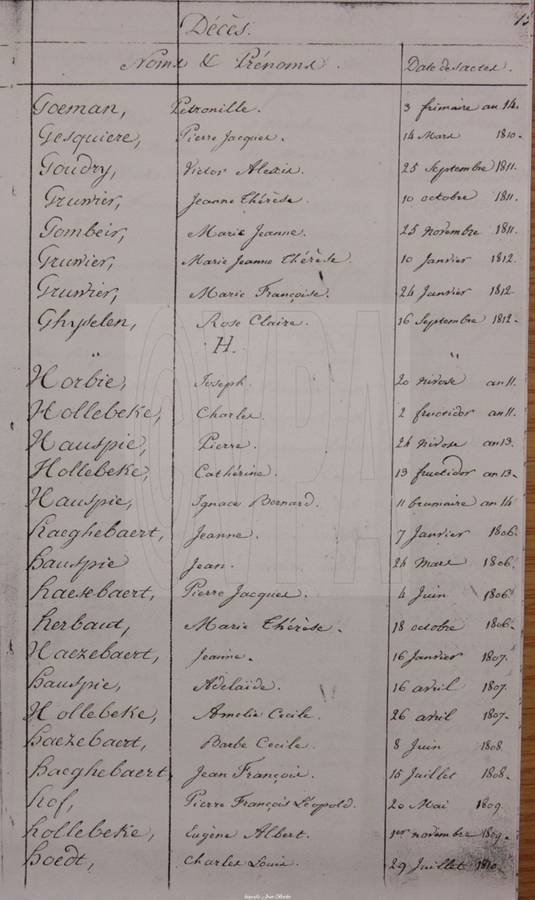 15
Décès.
Noms & Prénoms. Date des actes.
Goeman, Petronille. 3 frimaire an 14.
Gesquiere, Pierre Jacques. 14 Mars 1810.
Goudry, Victor Alexis. 25 Septembre 1811.
Gruwier, Jeanne Thérèse. 10 octobre 1811.
Gombeir, Marie Jeanne. 25 novembre 1811.
Gruwier, Marie Jeanne Thérèse. 10 Janvier 1812.
Gruwier, Marie Françoise. 24 Janvier 1812
Ghyselen, Rose Claire. 16 Septembre 1812.
" H. "
Horbie, Joseph. 20 nivose an 11.
Hollebeke, Charles. 2 fructidor an 11.
Hauspie, Pierre. 24 nivose an 13.
Hollebeke, Cathérine. 13 fructidor an 13.
Hauspie, Ignace Bernard. 11 brumaire an 14
haeghebaert, Jeanne. 7 Janvier 1806.
hauspie Jean. 24 mars 1806.
haesebaert, Pierre Jacques. 4 Juin 1806
herbaut, Marie Thérèse. 18 octobre 1806.
Haezebaert, Jeanne. 16 Janvier 1807.
hauspie, Adelaïde. 16 avril 1807.
Hollebeke, Amelie Cecile. 26 avril 1807.
haezebaert, Barbe Cecile. 8 Juin 1808
haeghebaert, Jean François. 15 Juillet 1808.
hof, Pierre François Léopold. 20 Mai 1809.
hollebeke, Eugène Albert. 1er novembre 1809.
hoedt, Charles Louis. 29 Juillet 1810.